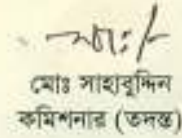 মোঃ সাহাবুদ্দিন
কমিশনার (তদন্ত)